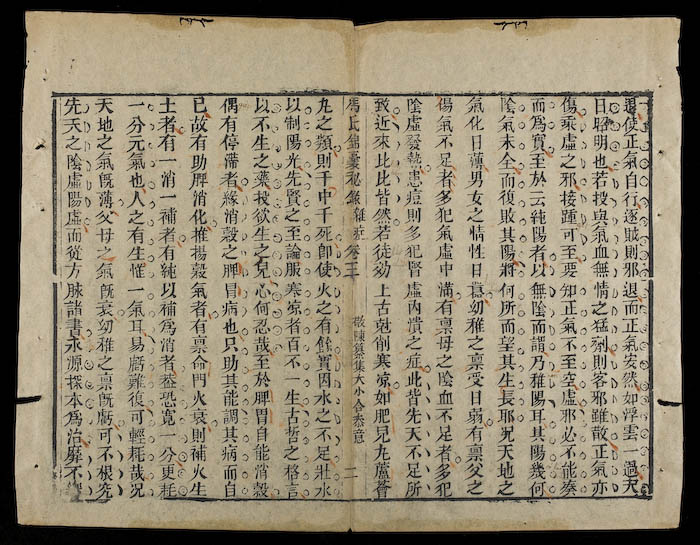 使正氣自行逐賊則邪退而正氣安然如浮雲一過天
日昭明也若投與氣血無情之猛劑則客邪雖散正氣亦
傷乘虛之邪接踵可至要知正氣不至空虛邪必不能湊
而爲實至於云純陽者以無陰而謂乃稚陽耳其陽幾何
陰氣未全而復敗其陽將何所而望其生長耶况天地之
氣化日薄男女之情性日幼稚之稟受日弱有稟父之
傷氣不足者多犯氣虛中滿有稟母之陰血不足者多犯
陰虛發熱患痘則多犯腎虛內潰之症此皆先天不足所
致近來比比皆然若徒効上古尅削寒凉如肥兒丸蘆薈
馮氏錦囊秘錄雜症卷三 敬陳纂集大小合叅意 二
丸之類則千中千死卽使火之有餘實因水之不足壯水
以制陽光先賢之至論服寒凉者百不一生古哲之格言
以不生之藥投欲生之兒心何忍哉至於脾胃自能消穀
偶有停滯者緣消穀之脾胃病也只助其能調其病而自
已故有助脾消化推揚穀氣者有稟命門火衰則補火生
土者有一消一補者有純以補爲消者葢恐寬一分更耗
一分元氣也人之有生惟一氣耳易虧難復可輕耗哉况
天地之氣旣薄父母之氣旣衰幼稚之稟旣虧可不根究
先天之陰虛陽虛而從方脉諸書求源探本爲治屏不